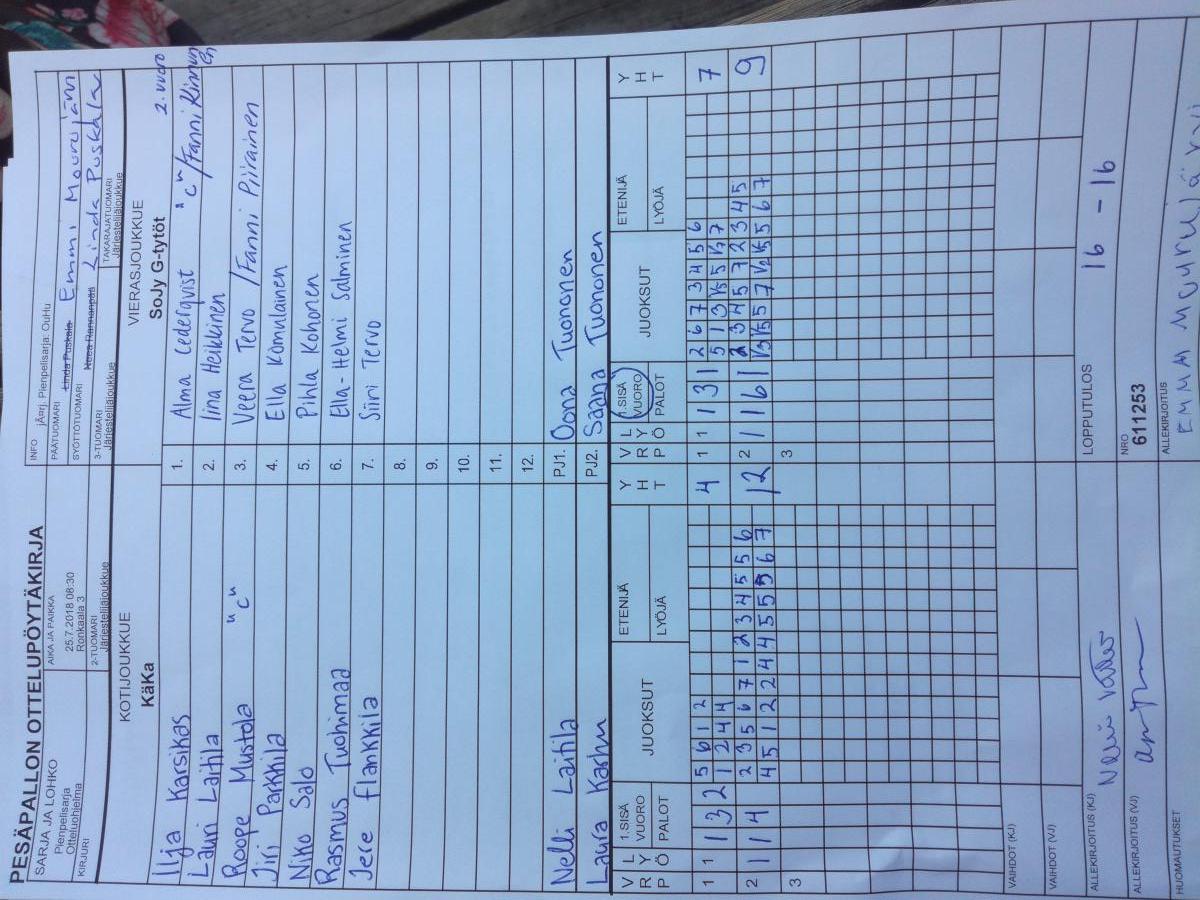 PESÄPALLON OTTELUPÖYTÄKIRJA
SARJA JA LOHKO
Pienpelisarja
Otteluohjelma
KIRJURI
AIKA JA PAIKKA
25.7.2018 08:30
Ronkaala 3
2-TUOMARI
Järjestelijäjoukkue
INFO jÄerj. Pienpelisarja: OuHu
PÄÄTUOMARI Linda Puskala Emmi Mourujärvi
SYÖTTÖTUOMARI
Neea Rannanpää Linda Puskala
3-TUOMARI
Järjestelijäjoukkue
TAKARAJATUOMARI
Järjestelijäjoukkue
KOTIJOUKKUE
KäKa
VIERASJOUKKUE
SoJy G-tytöt 2. vuoro
Ilja Karsikas 1. Alma Cederqvist "C" /Fanni Kinnunen
Lauri Laitila 2. Iina Heikkinen
Roope Mustola "C" 3. Veera Tervo /Fanni Piirainen
Jiri Parkkila 4. Ella Komulainen
Niko Salo 5. Pihla Kohonen
Rasmus Tuohimaa 6. Ella-Helmi Salminen
Jere Flankkila 7. Siiri Tervo
8.
9.
10.
11.
12.
Nelli Laitila PJ1. Oona Tuononen
Laura Karhu PJ2. Saana Tuononen
VRP LYÖ 1.SISÄ VUORO PALOT JUOKSUT ETENIJÄ LYÖJÄ YHT VRP LYÖ 1.SISÄ VUORO PALOT JUOKSUT ETENIJÄ LYÖJÄ YHT
1 1 1 3 2 5 6 1 2 4 1 1 1 3 1 2 6 7 3 4 5 6 7
1 2 4 4 5 1 3 1/5 5 1/7 7
2 1 1 4 2 3 5 6 7 1 2 3 4 5 5 6 12 2 1 1 6 1 2 3 4 5 7 2 3 4 5 9
4 5 1 2 2 4 4 5 5 5 6 7 1/3 1/5 5 7 1/2 1/5 5 6 7
3 3
VAIHDOT (KJ)
VAIHDOT (VJ)
LOPPUTULOS 16 - 16
ALLEKIRJOITUS (KJ)
ALLEKIRJOITUS (VJ)
NRO
611253
HUOMAUTUKSET
ALLEKIRJOITUS
EMMA MOURUJÄRVI